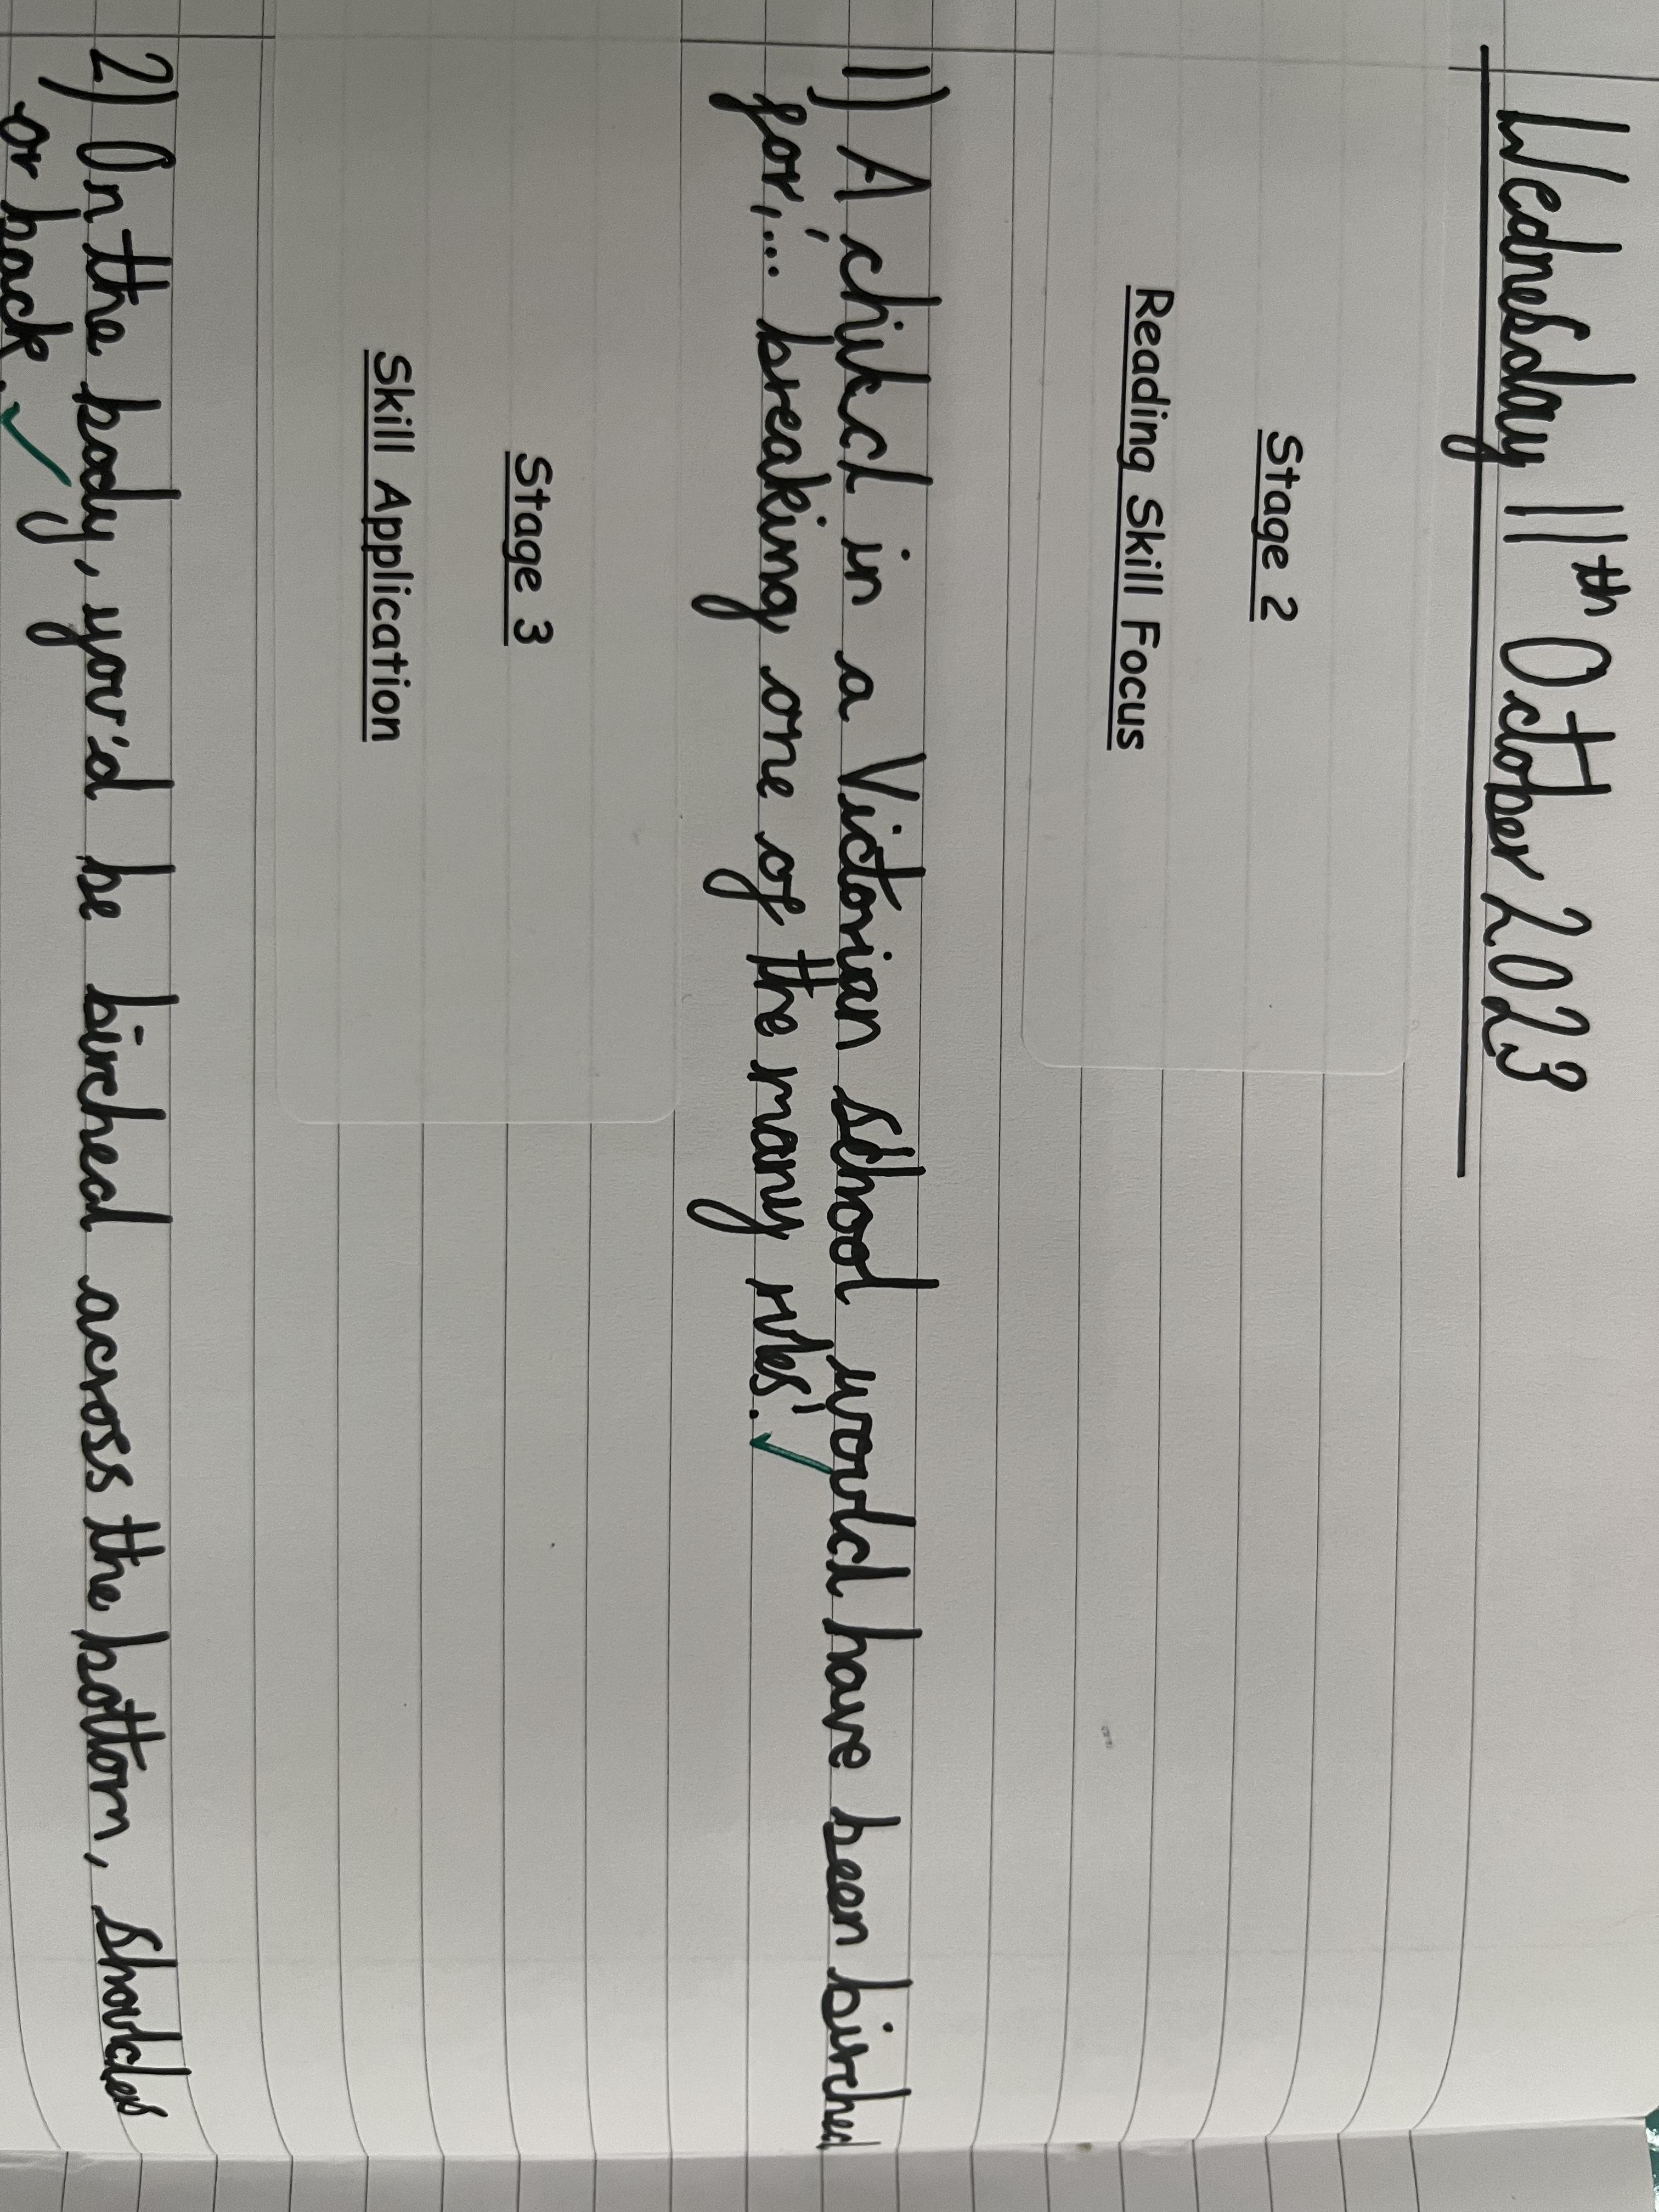 Wednesday 11th October 2023
Stage 2
Reading Skill Focus
1) A child in a Victorian school would have been birched
for, '... breaking one of the many rules'.
Stage 3
Skill Application
2) On the body, you'd be birched across the bottom, shoulders
or back.